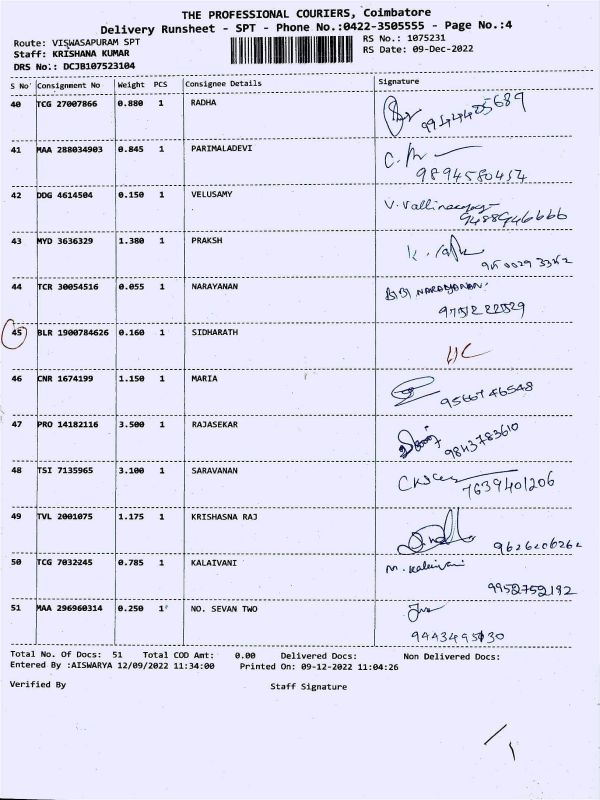 THE PROFESSIONAL COURIERS, Coimbatore
Delivery Runsheet - SPT - Phone No.:0422-3505555 - Page No.:4
Route: VISWASAPURAM SPT
RS No.: 1075231
Staff: KRISHANA KUMAR
RS Date: 09-Dec-2022
DRS No.: DCJB107523104
S No Consignment No Weight PCS Consignee Details Signature
40 TCG 27007866 0.880 1 RADHA
41 MAA 288034903 0.845 1 PARIMALADEVI
9894580454
42 DDG 4614504 0.150 1 VELUSAMY
9488946666
43 MYD 3636329 1.380 1 PRAKSH
44 TCR 30054516 0.055 1 NARAYANAN
NARAYANAN
45 BLR 1900784626 0.160 1 SIDHARATH
46 CNR 1674199 1.150 1 MARIA
9566746548
47 PRO 14182116 3.500 1 RAJASEKAR
9843783610
48 TSI 7135965 3.100 1 SARAVANAN
7639401206
49 TVL 2001075 1.175 1 KRISHASNA RAJ
9626206262
50 TCG 7032245 0.785 1 KALAIVANI
M. Kalaivani
9952752192
51 MAA 296960314 0.250 1 NO. SEVAN TWO
Total No. Of Docs: 51 Total COD Amt: 0.00 Delivered Docs: Non Delivered Docs:
Entered By :AISWARYA 12/09/2022 11:34:00 Printed On: 09-12-2022 11:04:26
Verified By Staff Signature